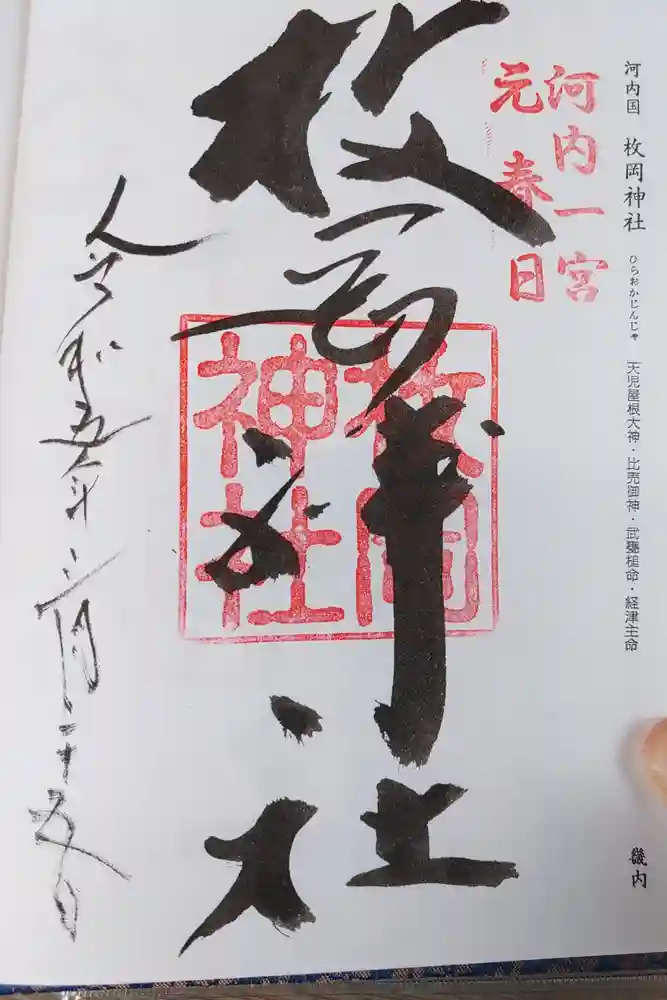 河内国 枚岡神社 ひらおかじんじゃ 天児屋根大神・比売御神・武甕槌命・経津主命 畿内
河内一宮
元春日
枚岡神社
枚岡
神社
令和五年二月二十五日